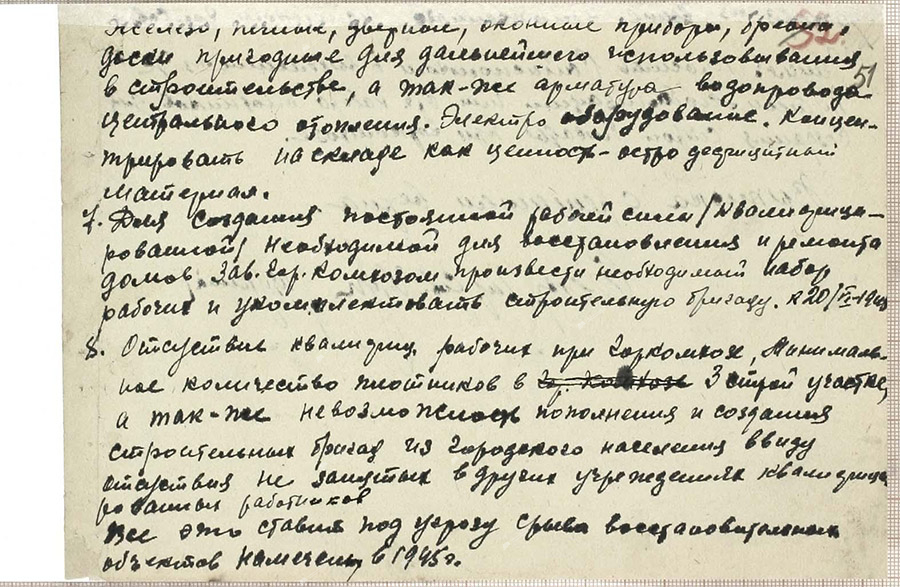 железо, печные, дверные, оконные приборы, бревна,
52.
доски пригодные для дальнейшего использовывания
51
в строительстве, а так-же арматура водопровода
центрального отопления. Электро оборудование. Концен-
трировать на складе как ценность-остро дефицитный
материал.
7. Для создания постоянной рабочей силы /квалифици-
рованной/ необходимой для восстановления и ремонта
домов. Зав. Гор. Комхозом произвести необходимый набор
рабочих и укомплектовать строительную бригаду. к 20/VI-1945
8. Отсутствие квалифиц. рабочих при Горкомхозе, Минималь-
ное количество плотников в Гор. Комхозе 3 строй участке,
а так-же невозможность пополнения и создания
строительных бригад из городского населения ввиду
отсутствия не занятых в других учреждениях квалифици
рованных работников
Все это ставит под угрозу срыва восстановительных
объектов намечен. в 1945г.